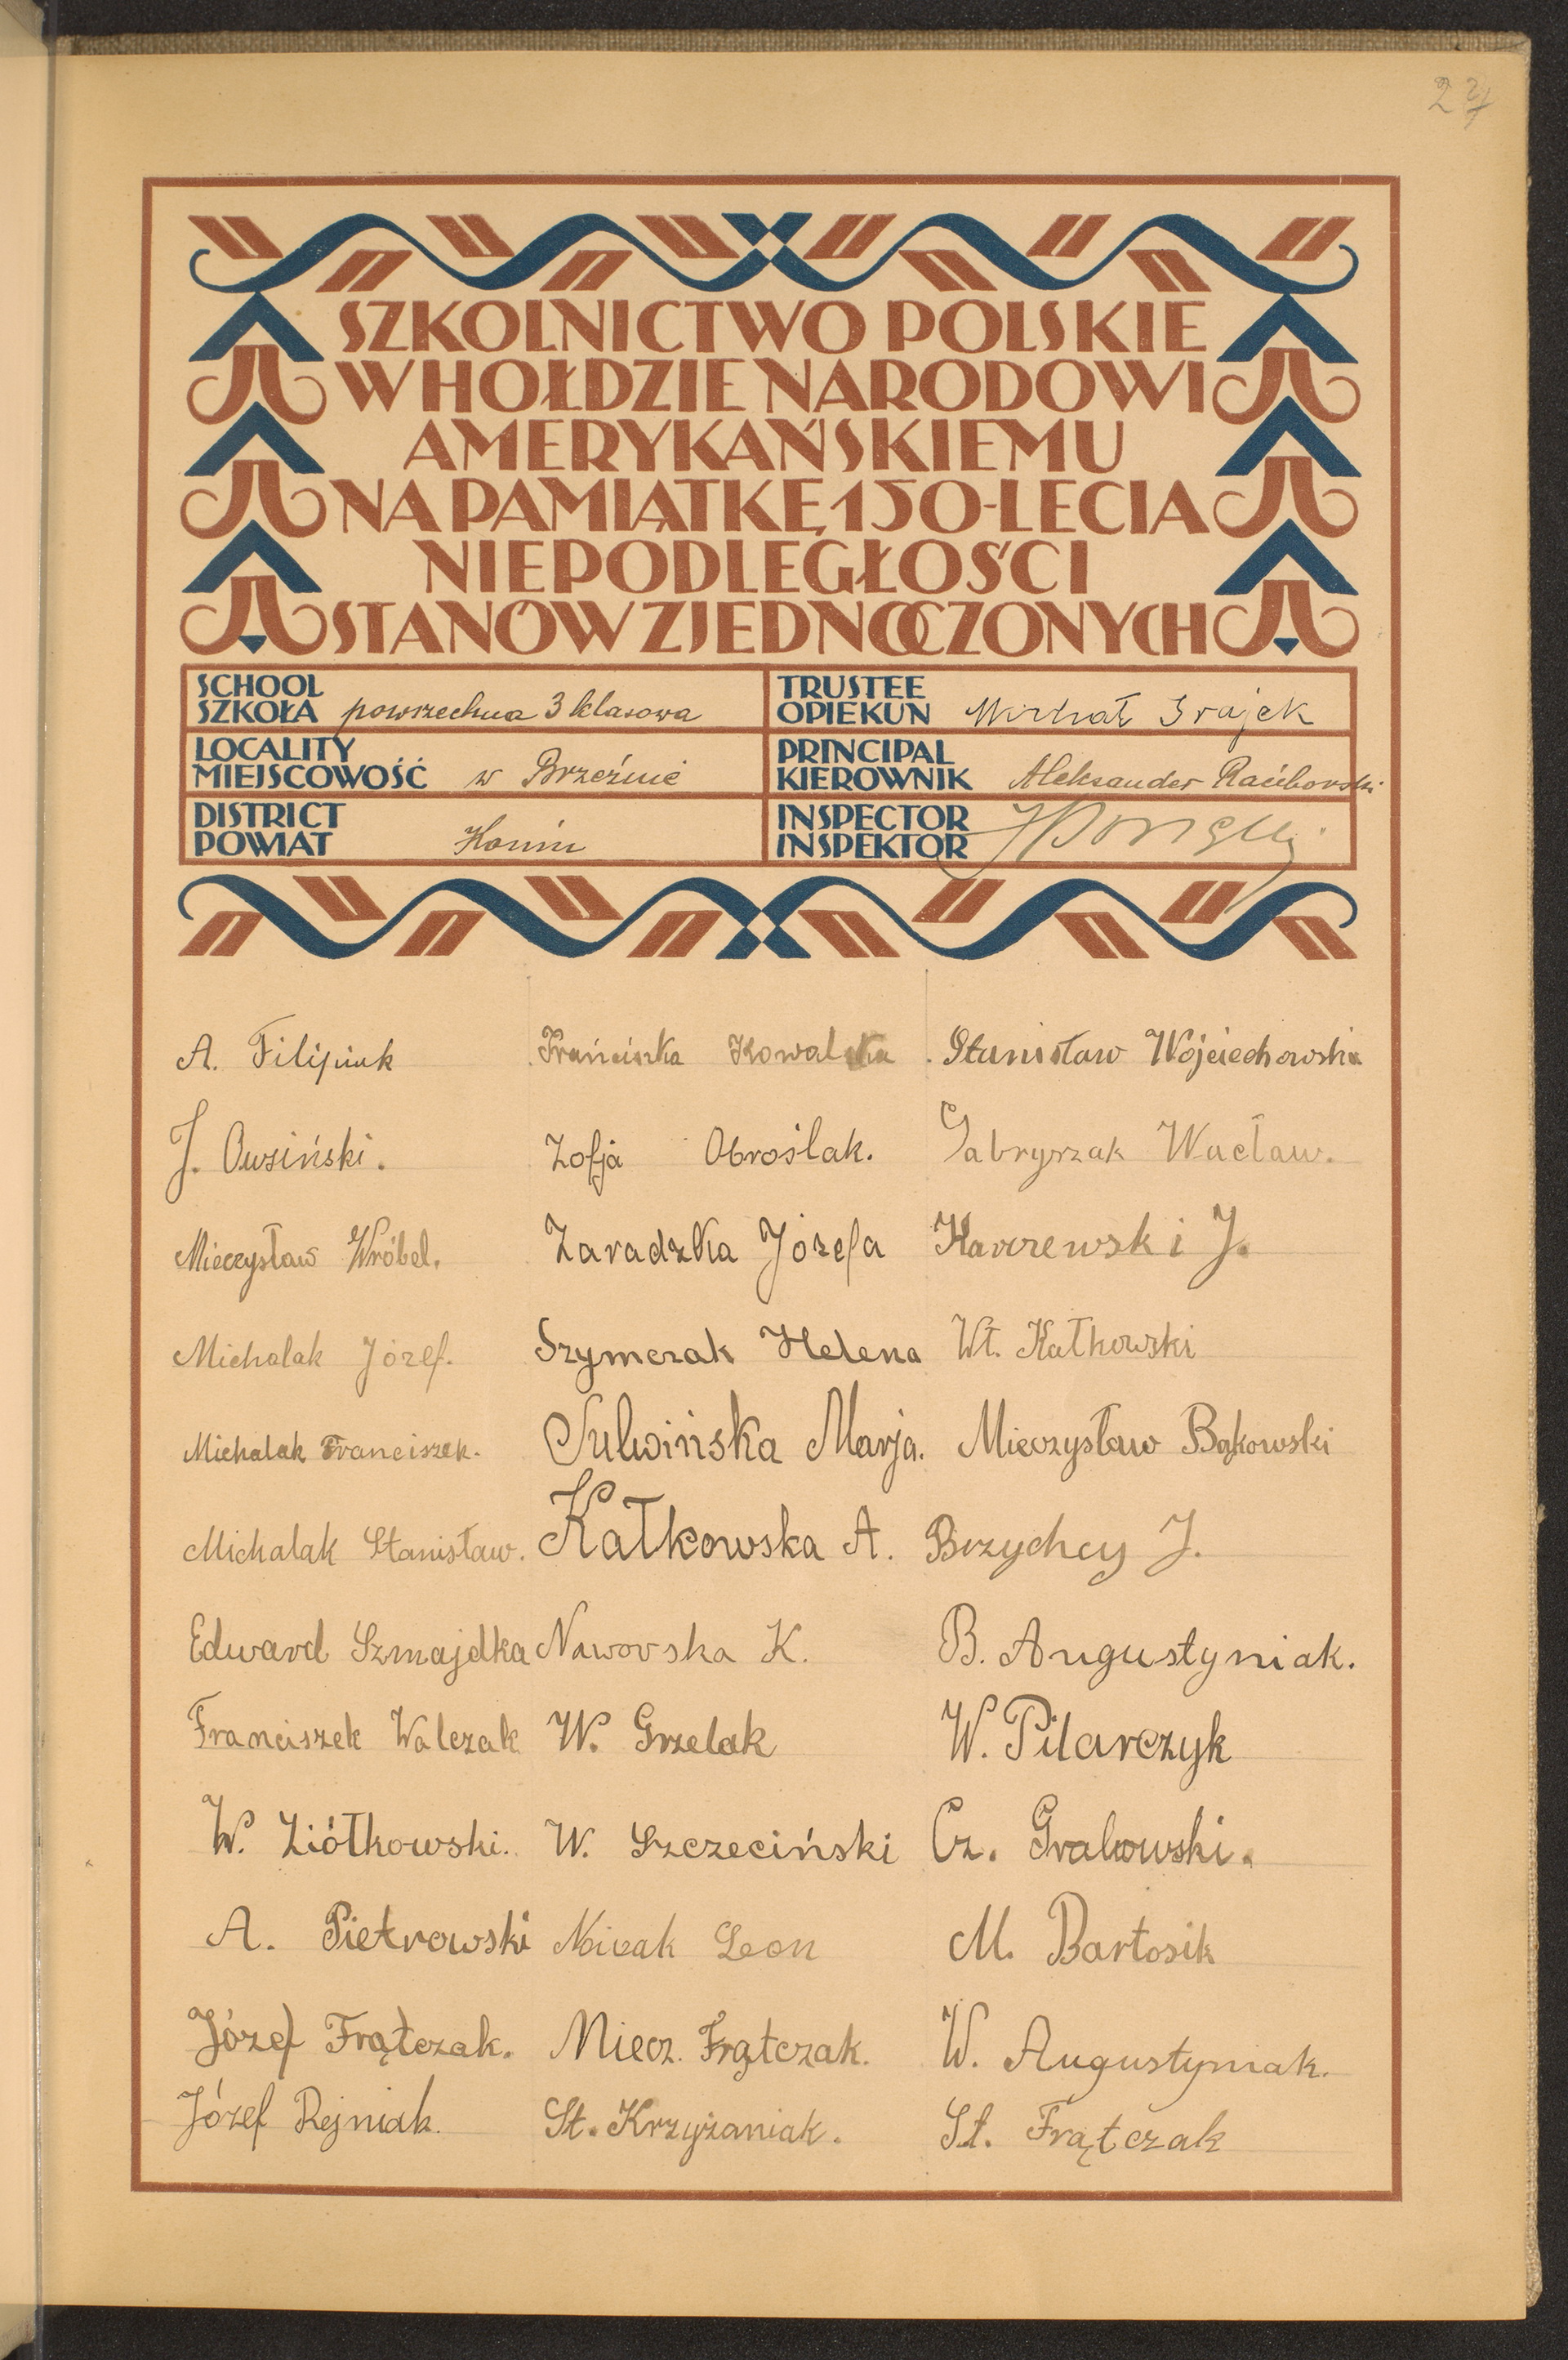 27
SZKOLNICTWO POLSKIE
W HOŁDZIE NARODOWI
AMERYKAŃSKIEMU
NA PAMIĄTKĘ 150-LECIA
NIEPODLEGŁOŚCI
STANÓW ZJEDNOCZONYCH
SCHOOL
SZKOŁA powszechna 3 klasowa
TRUSTEE
OPIEKUN Michał Grajek
LOCALITY
MIEJSCOWOŚĆ w Brzeźnie
PRINCIPAL
KIEROWNIK Aleksander Raciborski
DISTRICT
POWIAT Konin
INSPECTOR
INSPEKTOR
A. Filipiak
J. Owsiński.
Mieczysław Wróbel.
Michalak Józef.
Michalak Franciszek.
Michalak Stanisław.
Edward Szmajdka
Franciszek Walczak
W. Ziółkowski.
A. Pietrowski
Józef Frątczak.
Józef Rejniak.
Franciszka Kowalska
Zofja Obroślak.
Zaradzka Józefa
Szymczak Helena
Sulwińska Marja.
Kałkowska A.
Naworska K.
W. Grzelak
W. Szczeciński
Nowak Leon
Miecz. Frątczak.
St. Krzyżaniak.
Stanisław Wojciechowski
Gabryszak Wacław.
Karczewski J.
Wł. Kałkowski
Mieczysław Bąkowski
Brzychcy J.
B. Augustyniak.
W. Pilarczyk
Cz. Grabowski.
M. Bartosik
W. Augustyniak.
St. Frątczak